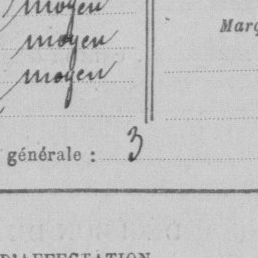 moyen
Marq
moyen
moyen
générale : 3
D'AFFECTATION